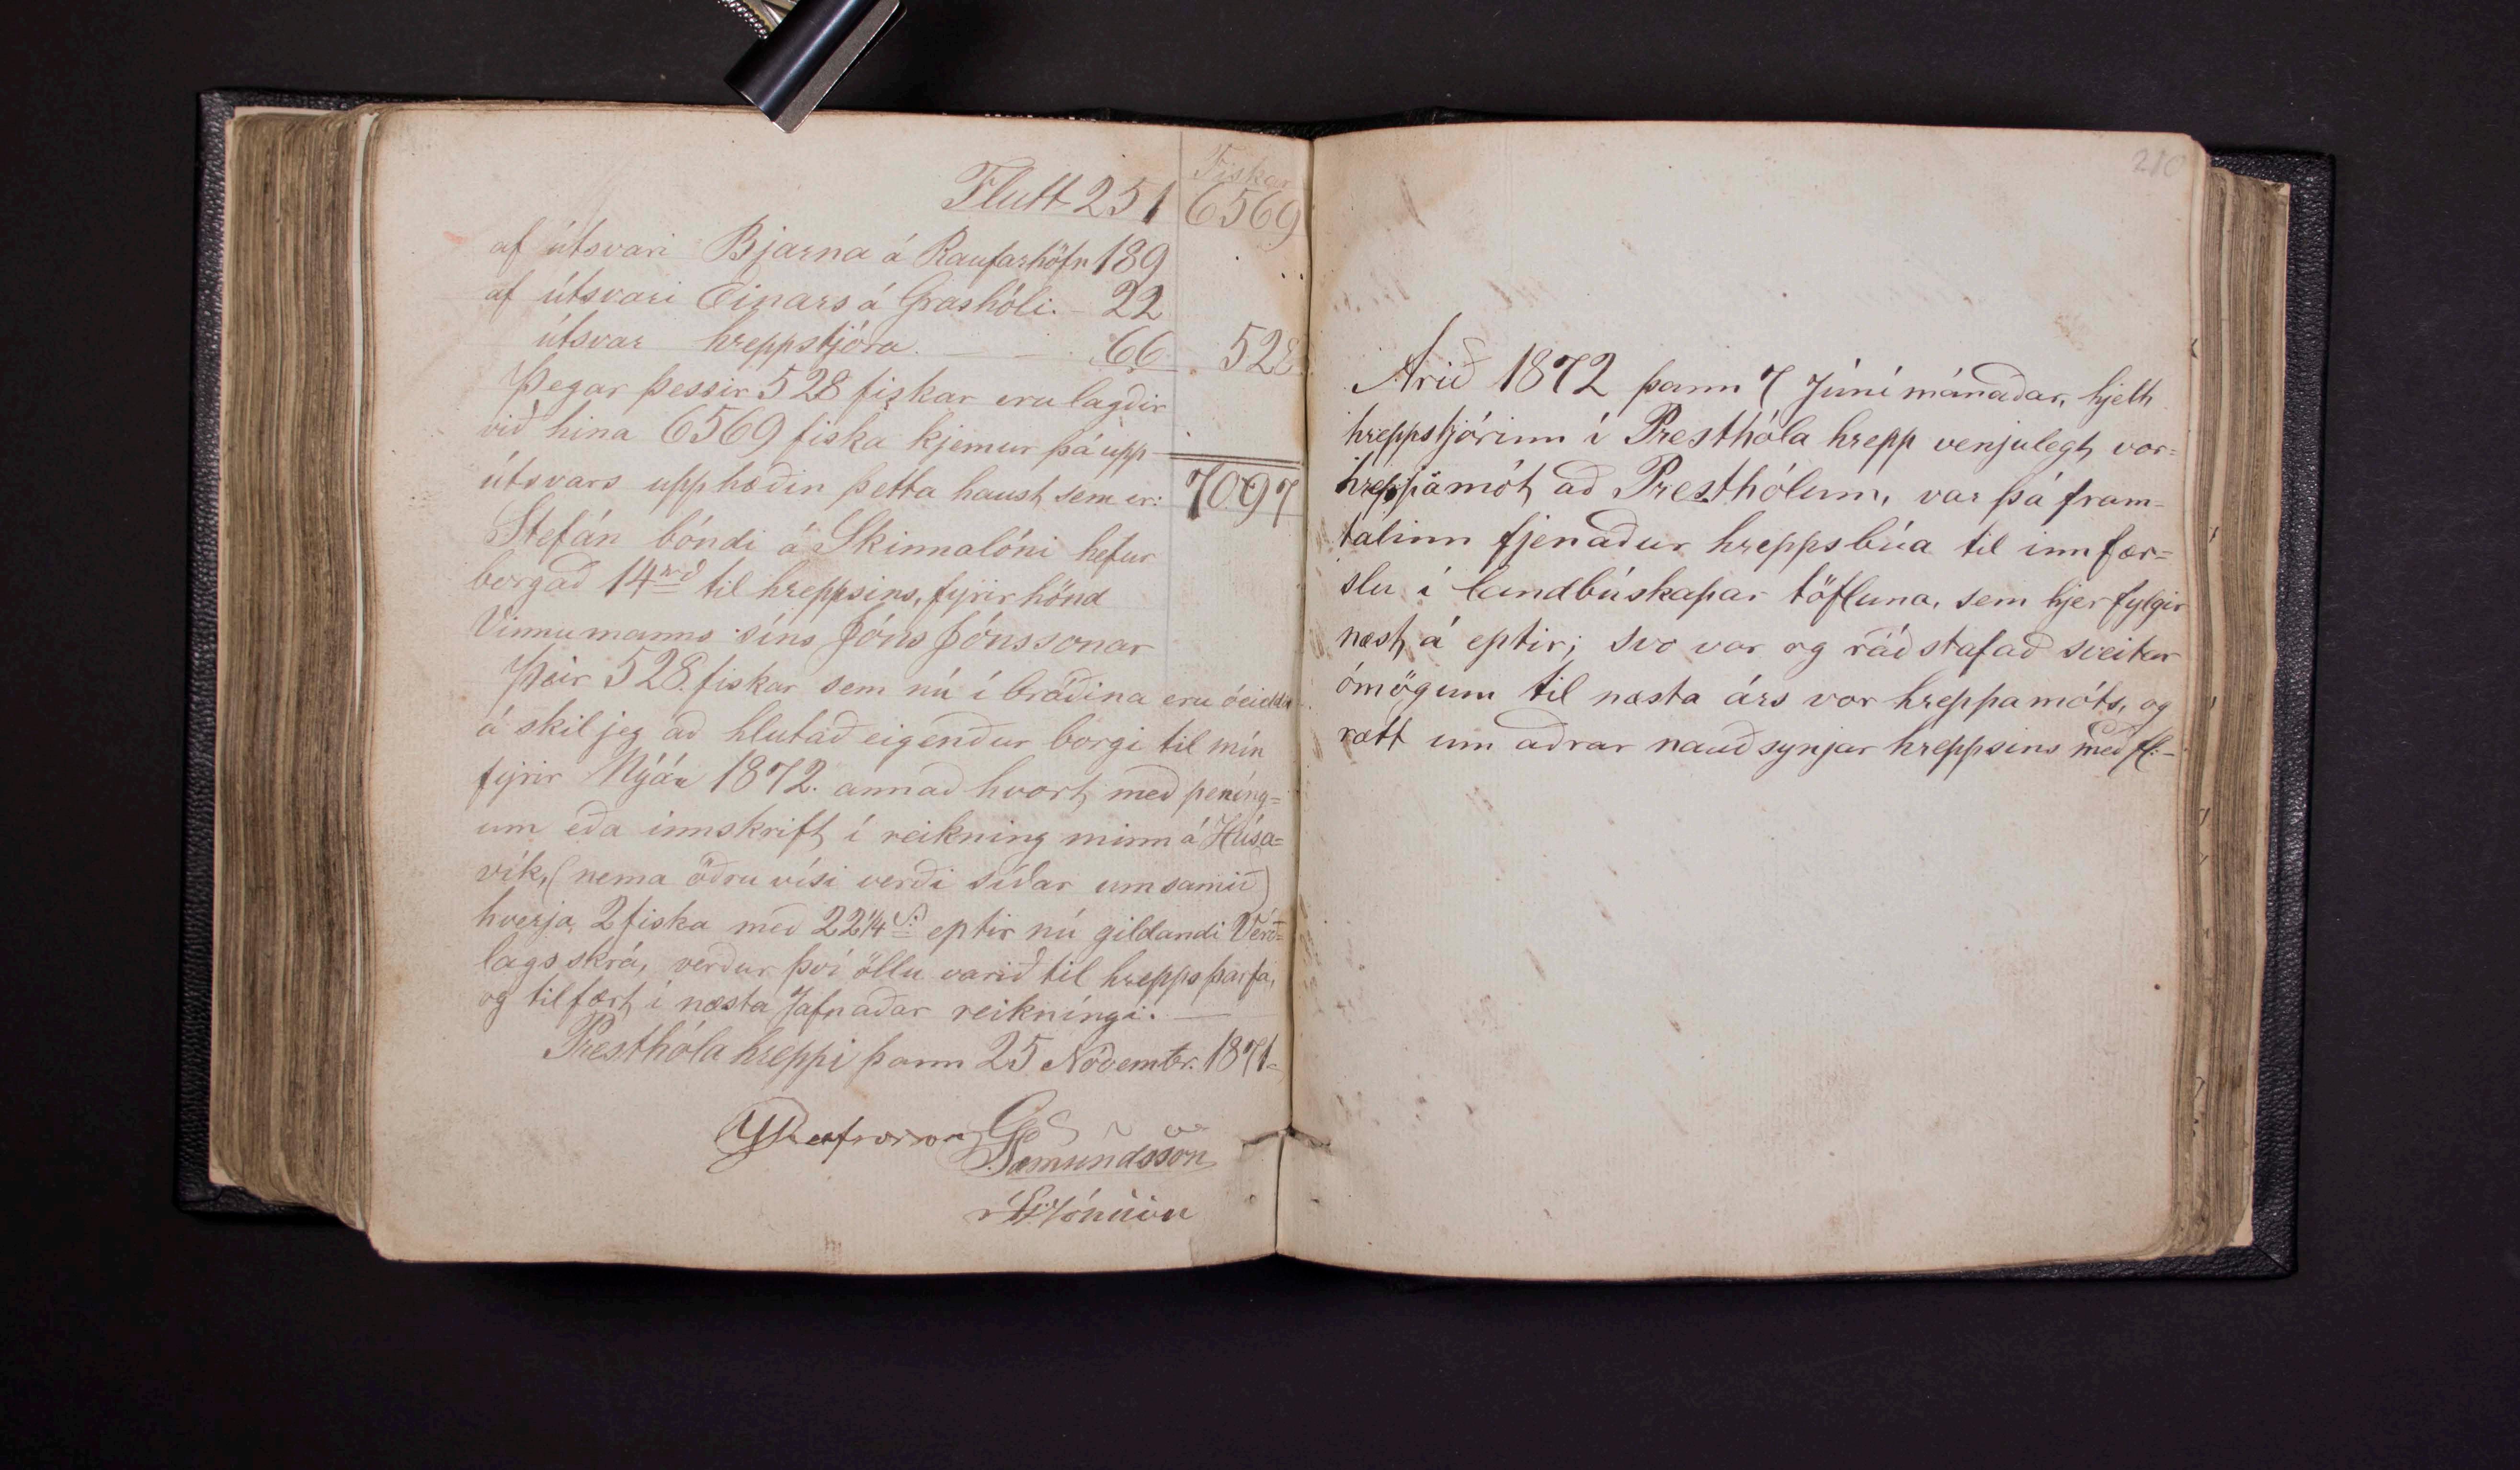 Fiskar
Flutt 251 6569
af útsvari Bjarna á Raufarhöfn 189
af útsvari Einars á Grashóli. - 22
útsvar hreppstjóra. — - 66 528
Þegar þessir 528 fiskar eru lagðir
við hina 6569 fiska kjemur þá upp
útsvars upphæðin þetta haust, sem er: 7097
Stefán bóndi á Skinnalóni hefur
borgað 14 til hreppsins, fyrir hönd
Vinnumanns síns Jóns Jónssonar
Þeir 528. fiskar sem nú í bráðina eru óeidd
á skil jeg að hlutað eigendur borgi til mín
fyrir Nýár 1872. annað hvort, með pening=
um eða innskrift, í reikning minn á Húsa=
vík, (nema öðru vísi verði síðar um samið)
hverja 2 fiska með 22¼ s: eptir nú gildandi Verð=
lags skrá, verður því öllu varið til hreppsþarfa,
og tilfært, í næsta Jafnaðar reikníngi. —
Presthóla hreppi þann 25 Nóvember. 1871-
Sæmundsson
Jónsson
210
Árið 1872 þann 7 Júní mánaðar, hjelt
hreppstjórinn í Presthóla hrepp venjulegt, vor=
hreppamót, að Presthólum, var þá fram=
talinn fjenaður hreppsbúa til innfær=
slu í landbúskapar töfluna, sem hjer fylgir
næst, á eptir; svo var og ráðstafað sveitar
ómögum til næsta árs vor hreppamóts, og
rætt um aðrar nauðsynjar hreppsins með fl:-